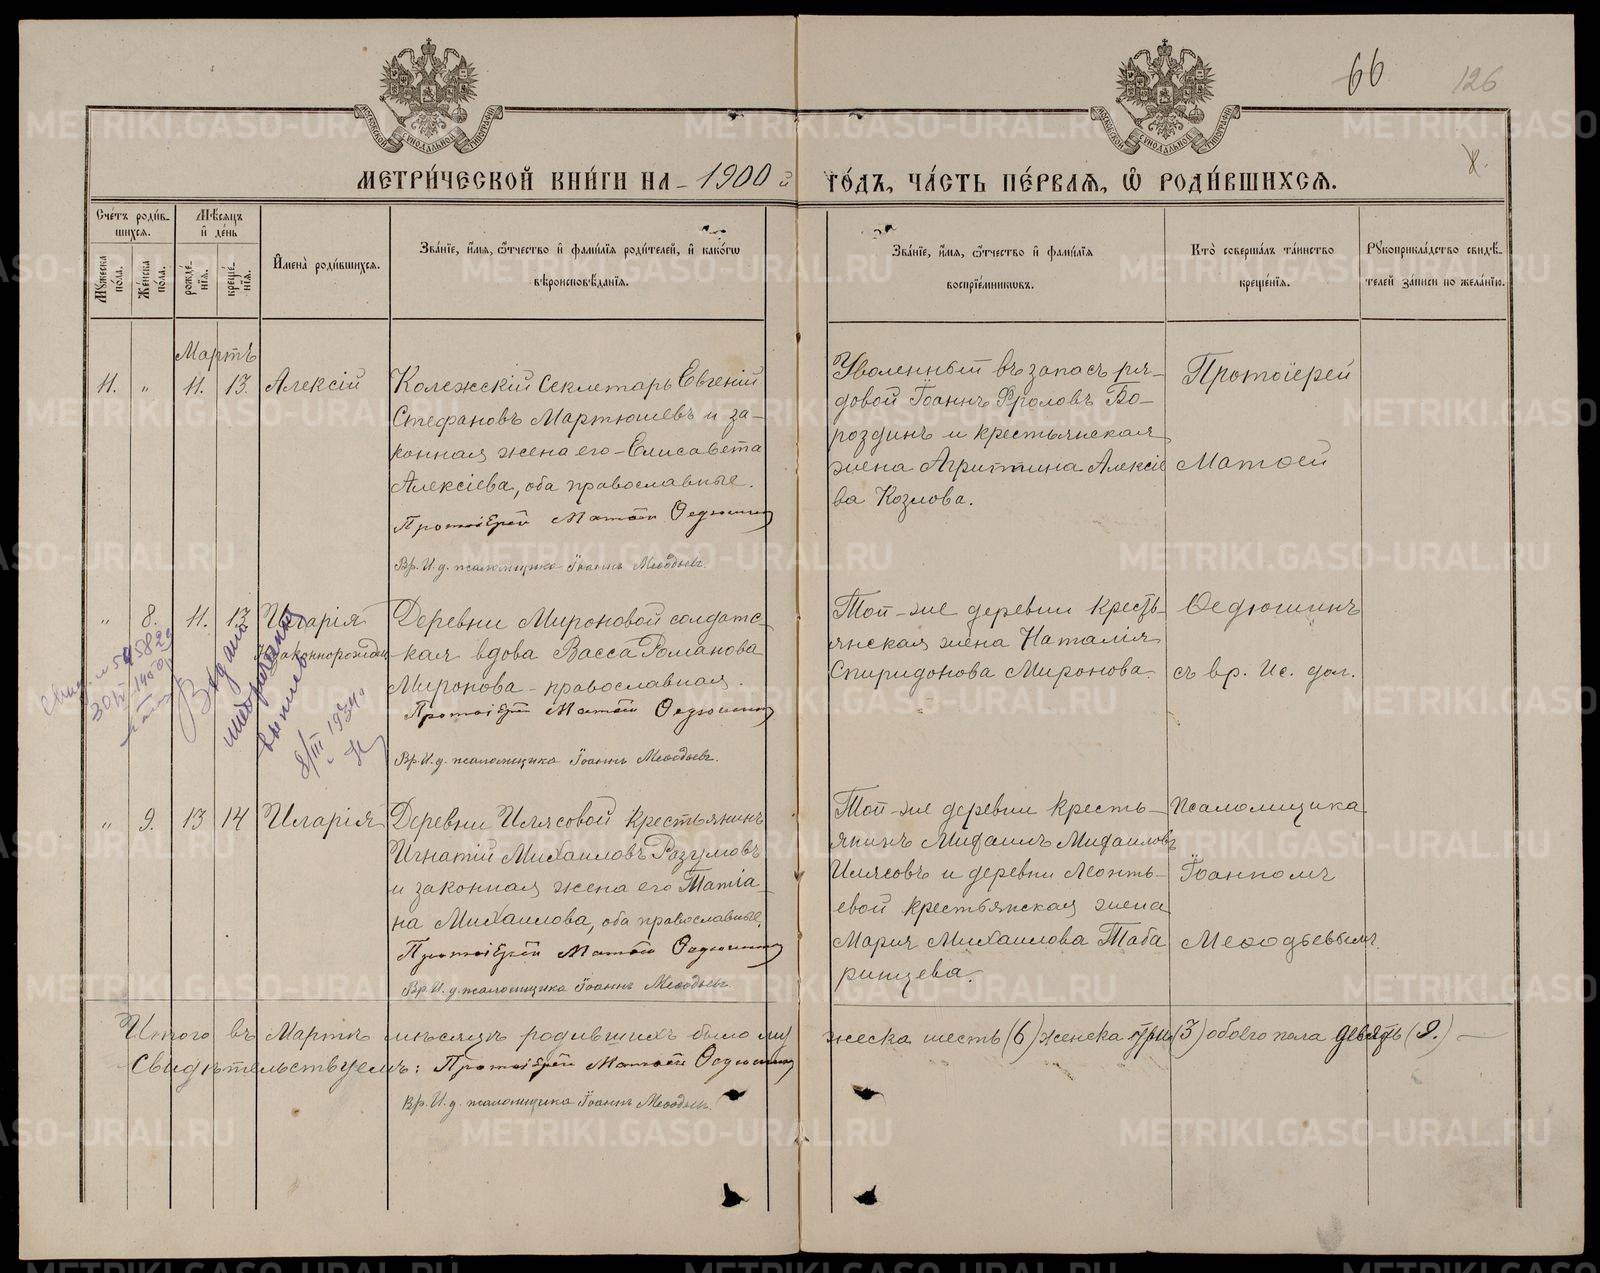 66
126
МЕТРИ́ЧЕСКОЙ КНИ́ГИ НА 1900 й ГО́ДЪ, ЧА́СТЬ ПЕ́РВАЯ, Ѽ РОДИ́ВШИХСЯ.
Сче́тъ роди́в-
шихся.
Мꙋ́жеска по́ла.
Же́нска по́ла.
Мѣ́сяцъ
и҆ де́нь
рожде́-
нїя.
креще́-
нїя.
И҆мена̀ роди́вшихся.
Зва́нїе, и҆́мя, ѻ҆́тчество и҆ фами́лїя роди́телей, и҆ како́гѡ
вѣроисповѣ́данїя.
Зва́нїе, и҆́мя, ѻ҆́тчество и҆ фами́лїя
воспрїе́мникѡвъ.
Кто̀ соверша́лъ та́инство
креще́нїя.
Рꙋкоприкла́дство свидѣ́-
телей за́писи по жела́нїю.
Мартъ
11. „ 11. 13. Алексій
Колежскій Секлетарь Евгеній
Стефановъ Мартюшевъ и за-
конная жена его - Елисавета
Алексіева, оба православные.
Протоіерей Матѳей Ѳедюшинъ
Вр. И. д. псаломщика Іоаннъ Меѳодьевъ.
Уволенный въ запасъ ря-
довой Іоаннъ Фроловъ Бо-
роздинъ и крестьянская
жена Агриппина Алексіе
ва Козлова.
Протоіерей
Матѳей
„ 8. 11. 13. Иларія
незаконнорожден
Деревни Мироновой солдатс-
кая вдова Васса Романова
Миронова - православная.
Протоіерей Матѳей Ѳедюшинъ
Вр. И. д. псаломщика Іоаннъ Меѳодьевъ.
Той-же деревни кресть-
янская жена Наталія
Спиридонова Миронова.
Ѳедюшинъ
съ вр. Ис. дол.
Выдана
выпись
8/III 1934 г.
„ 9. 13 14 Иларія
Деревни Илясовой крестьянинъ
Игнатій Михаиловъ Разумовъ
и законная жена его Татіа-
на Михаилова, оба православные.
Протоіерей Матѳей Ѳедюшинъ
Вр. И. д. псаломщика Іоаннъ Меѳодьевъ.
Той-же деревни кресть-
янинъ Михаилъ Михаиловъ
Илясовъ и деревни Леонть-
евой крестьянская жена
Марія Михаилова Таба
ринцева.
Псаломщика
Іоанномъ
Меѳодьевымъ.
Итого въ Мартѣ мѣсяцѣ родившихъ было му
жеска шесть (6) женска три (3) обоего пола девять (9.) —
Свидѣтельствуемъ: Протоіерей Матѳей Ѳедюшинъ
Вр. И. д. псаломщика Іоаннъ Меѳодьевъ.